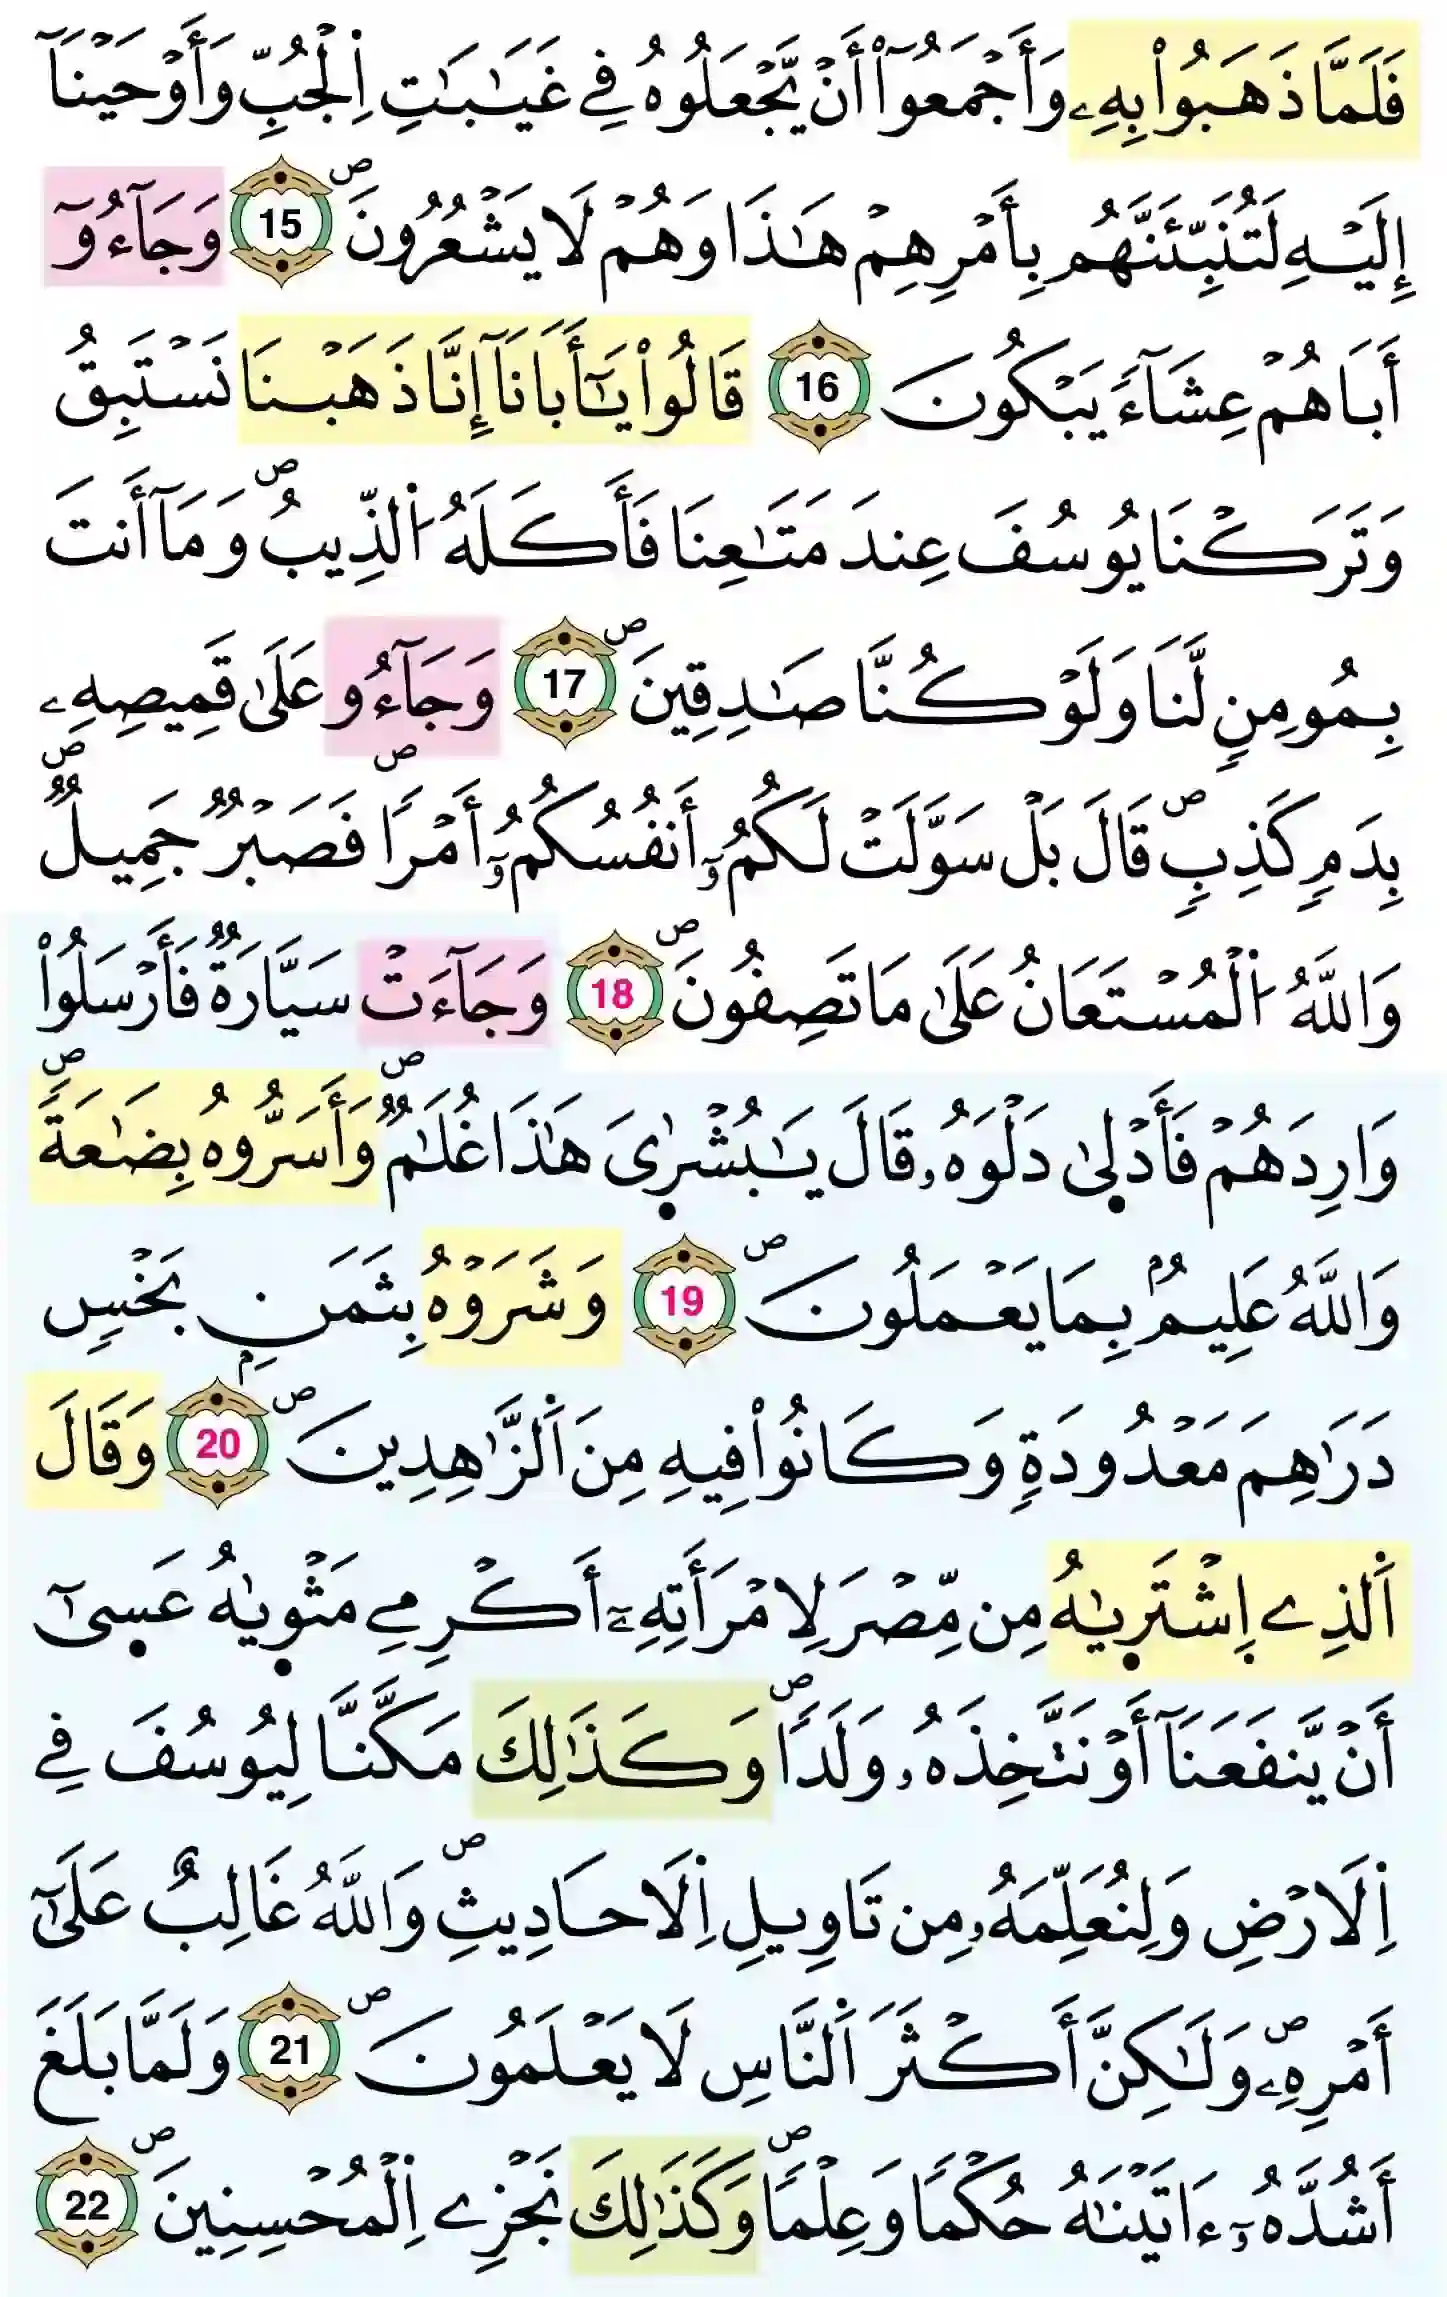 فَلَمَّا ذَهَبُواْ بِهِۦ وَأَجْمَعُوٓاْ أَنْ يَّجْعَلُوهُ فِے غَيَٰبَٰتِ اِ۬لْجُبِّ وَأَوْحَيْنَآ
إِلَيْهِ لَتُنَبِّئَنَّهُم بِأَمْرِهِمْ هَٰذَا وَهُمْ لَا يَشْعُرُونَۖ 15 وَجَآءُوٓ
أَبَاهُمْ عِشَآءَ يَبْكُونَ 16 قَالُواْ يَٰٓأَبَانَآ إِنَّا ذَهَبْنَا نَسْتَبِقُ
وَتَرَكْنَا يُوسُفَ عِندَ مَتَٰعِنَا فَأَكَلَهُ اُ۬لذِّيبُۖ وَمَآ أَنتَ
بِمُومِنٍ لَّنَا وَلَوْ كُنَّا صَٰدِقِينَۖ 17 وَجَآءُو عَلَىٰ قَمِيصِهِۦ
بِدَمٍ كَذِبٍۖ قَالَ بَلْ سَوَّلَتْ لَكُمُۥٓ أَنفُسُكُمُۥٓ أَمْراٗۖ فَصَبْرٞ جَمِيلٞۖ
وَاللَّهُ اُ۬لْمُسْتَعَانُ عَلَىٰ مَا تَصِفُونَۖ 18 وَجَآءَتْ سَيَّارَةٞ فَأَرْسَلُواْ
وَارِدَهُمْ فَأَدْل۪ىٰ دَلْوَهُۥ قَالَ يَٰبُشْرٰ۪ىَ هَٰذَا غُلَٰمٞۖ وَأَسَرُّوهُ بِضَٰعَةٗۖ
وَاللَّهُ عَلِيمُۢ بِمَا يَعْمَلُونَۖ 19 وَشَرَوْهُ بِثَمَنِۢ بَخْسٖ
دَرَٰهِمَ مَعْدُودَةٖ وَكَانُواْ فِيهِ مِنَ اَ۬لزَّٰهِدِينَۖ 20 وَقَالَ
اَ۬لذِے اِ۪شْتَر۪يٰهُ مِن مِّصْرَ لِامْرَأَتِهِۦٓ أَكْرِمِے مَثْو۪يٰهُ عَس۪ىٰٓ
أَنْ يَّنفَعَنَآ أَوْ نَتَّخِذَهُۥ وَلَداٗۖ وَكَذَٰلِكَ مَكَّنَّا لِيُوسُفَ فِے
اِ۬لَارْضِ وَلِنُعَلِّمَهُۥ مِن تَاوِيلِ اِ۬لَاحَادِيثِۖ وَاللَّهُ غَالِبٌ عَلَىٰٓ
أَمْرِهِۦۖ وَلَٰكِنَّ أَكْثَرَ اَ۬لنَّاسِ لَا يَعْلَمُونَۖ 21 وَلَمَّا بَلَغَ
أَشُدَّهُۥٓ ءَاتَيْنَٰهُ حُكْماٗ وَعِلْماٗۖ وَكَذَٰلِكَ نَجْزِے اِ۬لْمُحْسِنِينَۖ 22